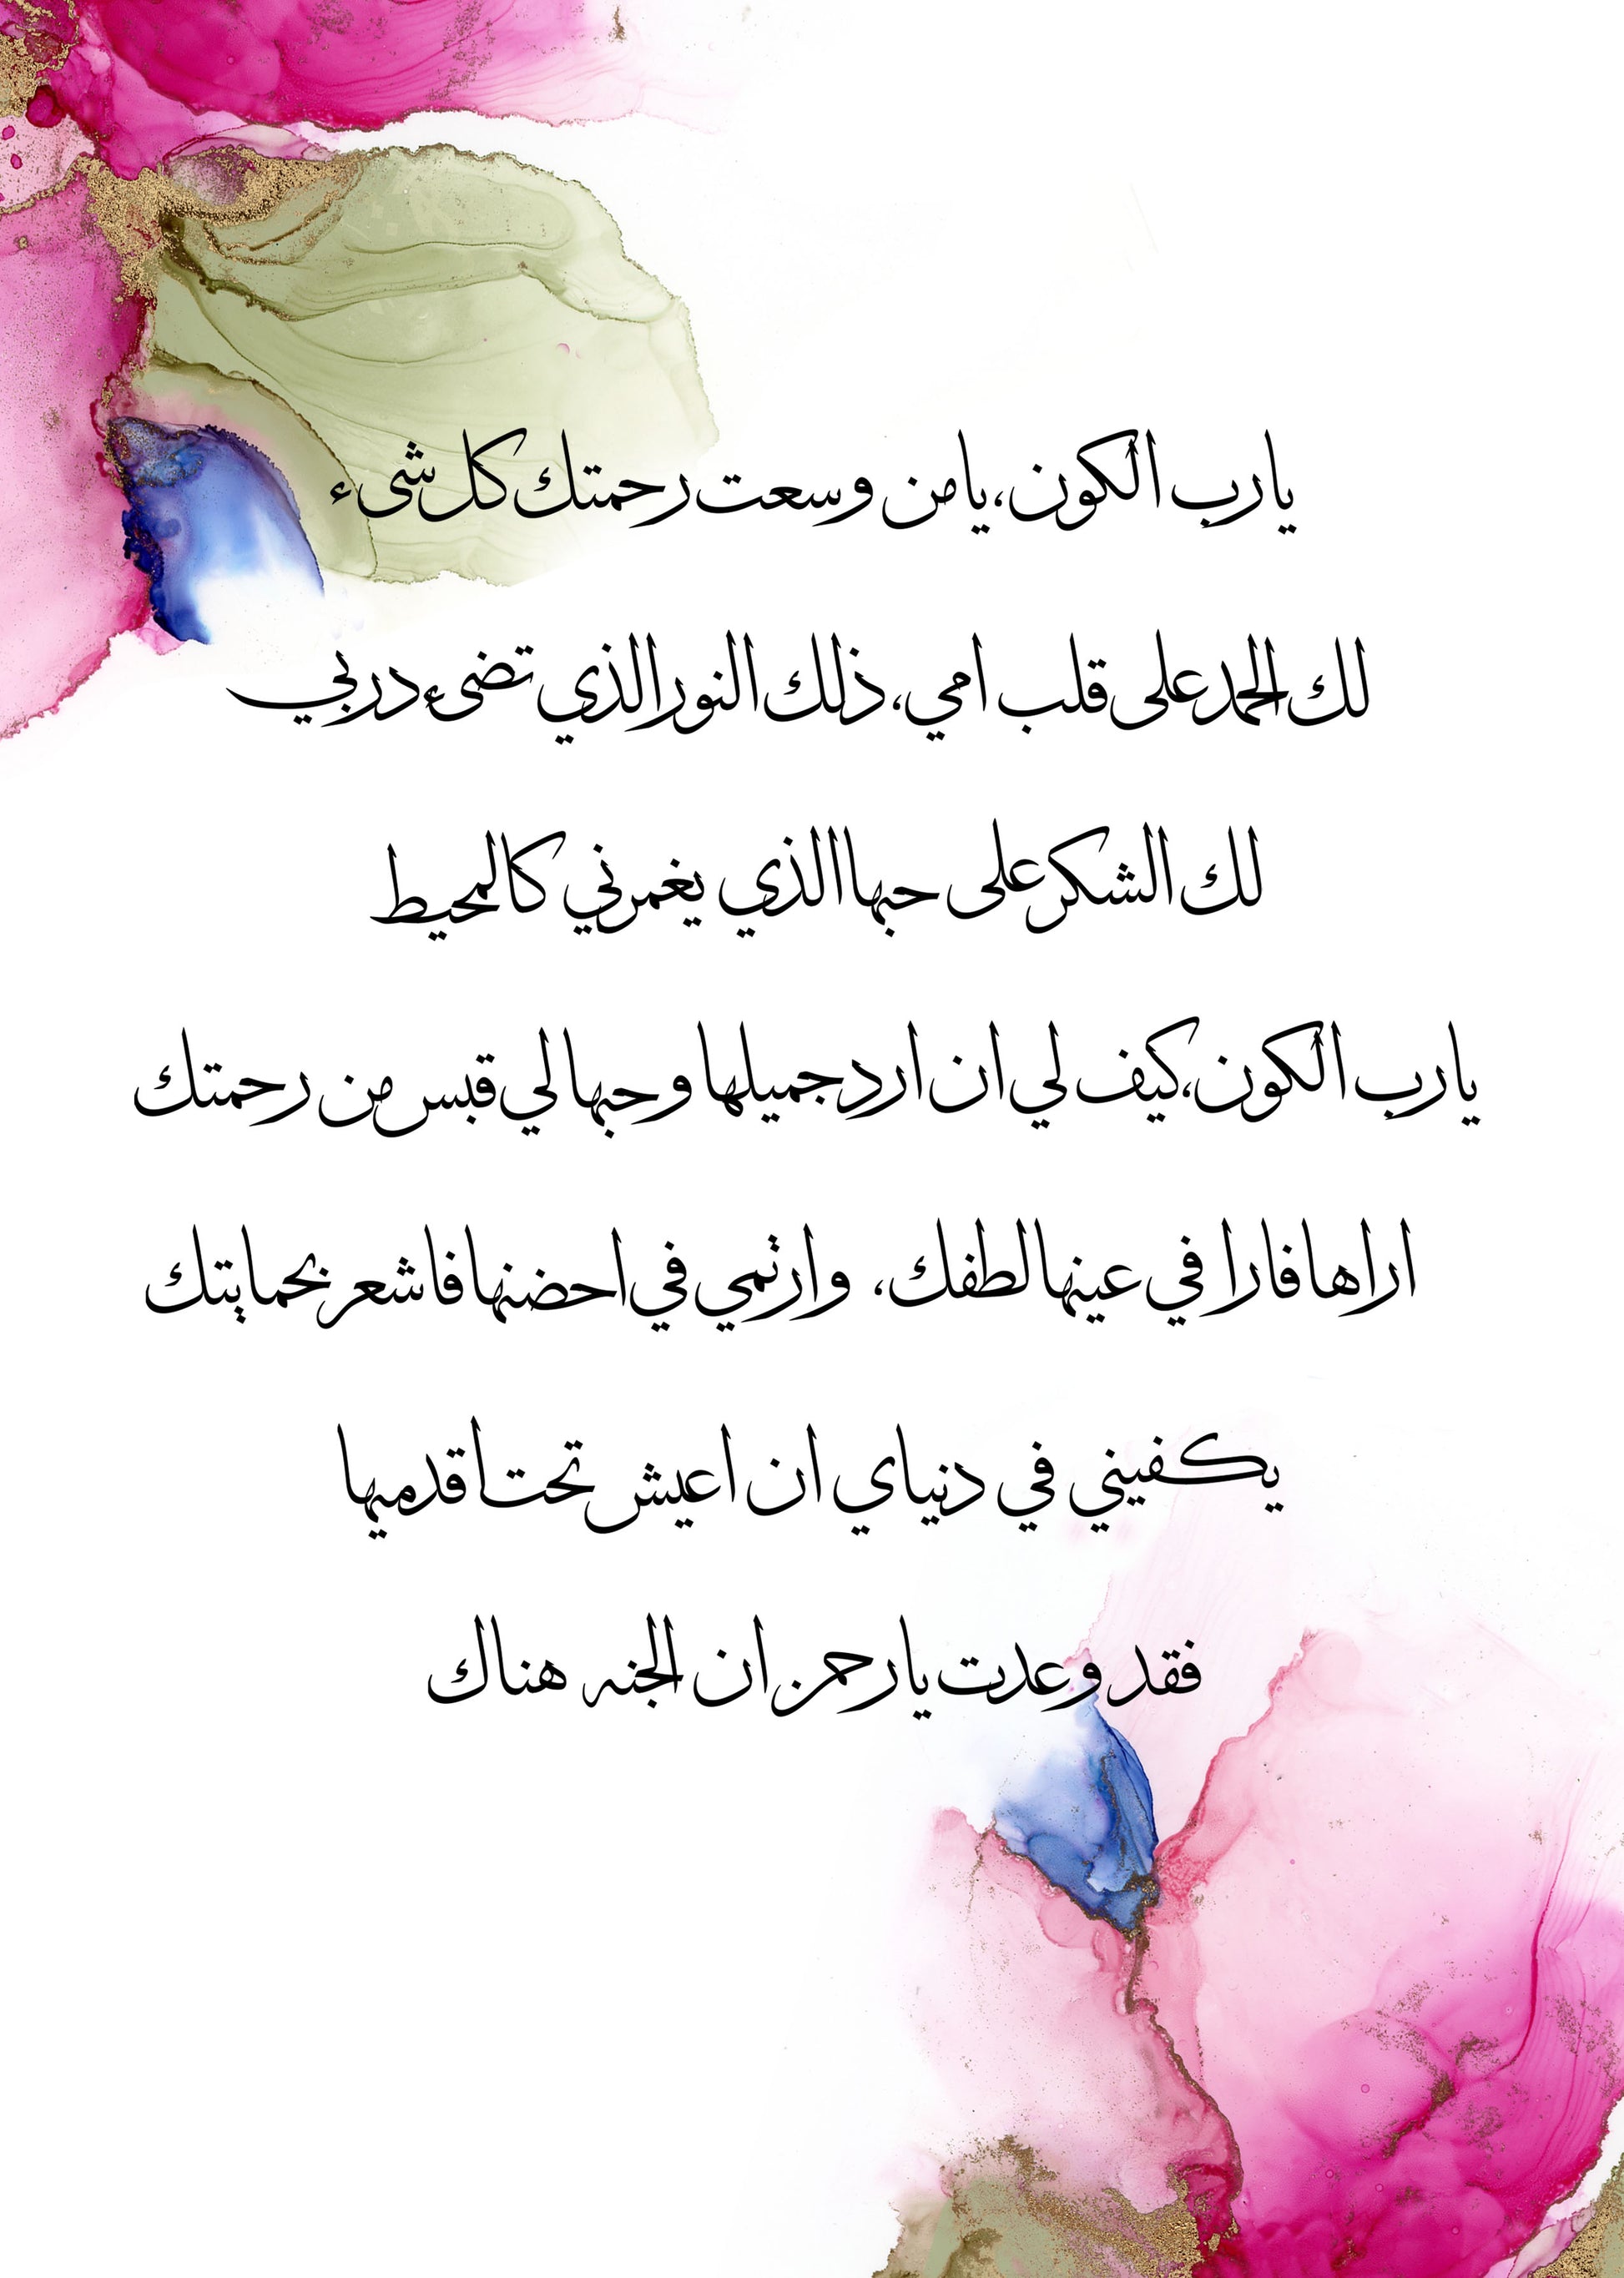 يارب الكون،يامن وسعت رحمتك كل شىء
لك الحمد على قلب امي، ذلك النور الذي تضىء دربي
لك الشكر على حبها الذي يغمرني كالمحيط
يارب الكون،كيف لي ان ارد جميلها وحبها لي قبس من رحمتك
اراها فارا في عينها لطفك، وارتمي في احضنها فاشعر بحمايتك
يكفيني في دنياي ان اعيش تحت اقدميها
فقد وعدت يارحمن ان الجنه هناك